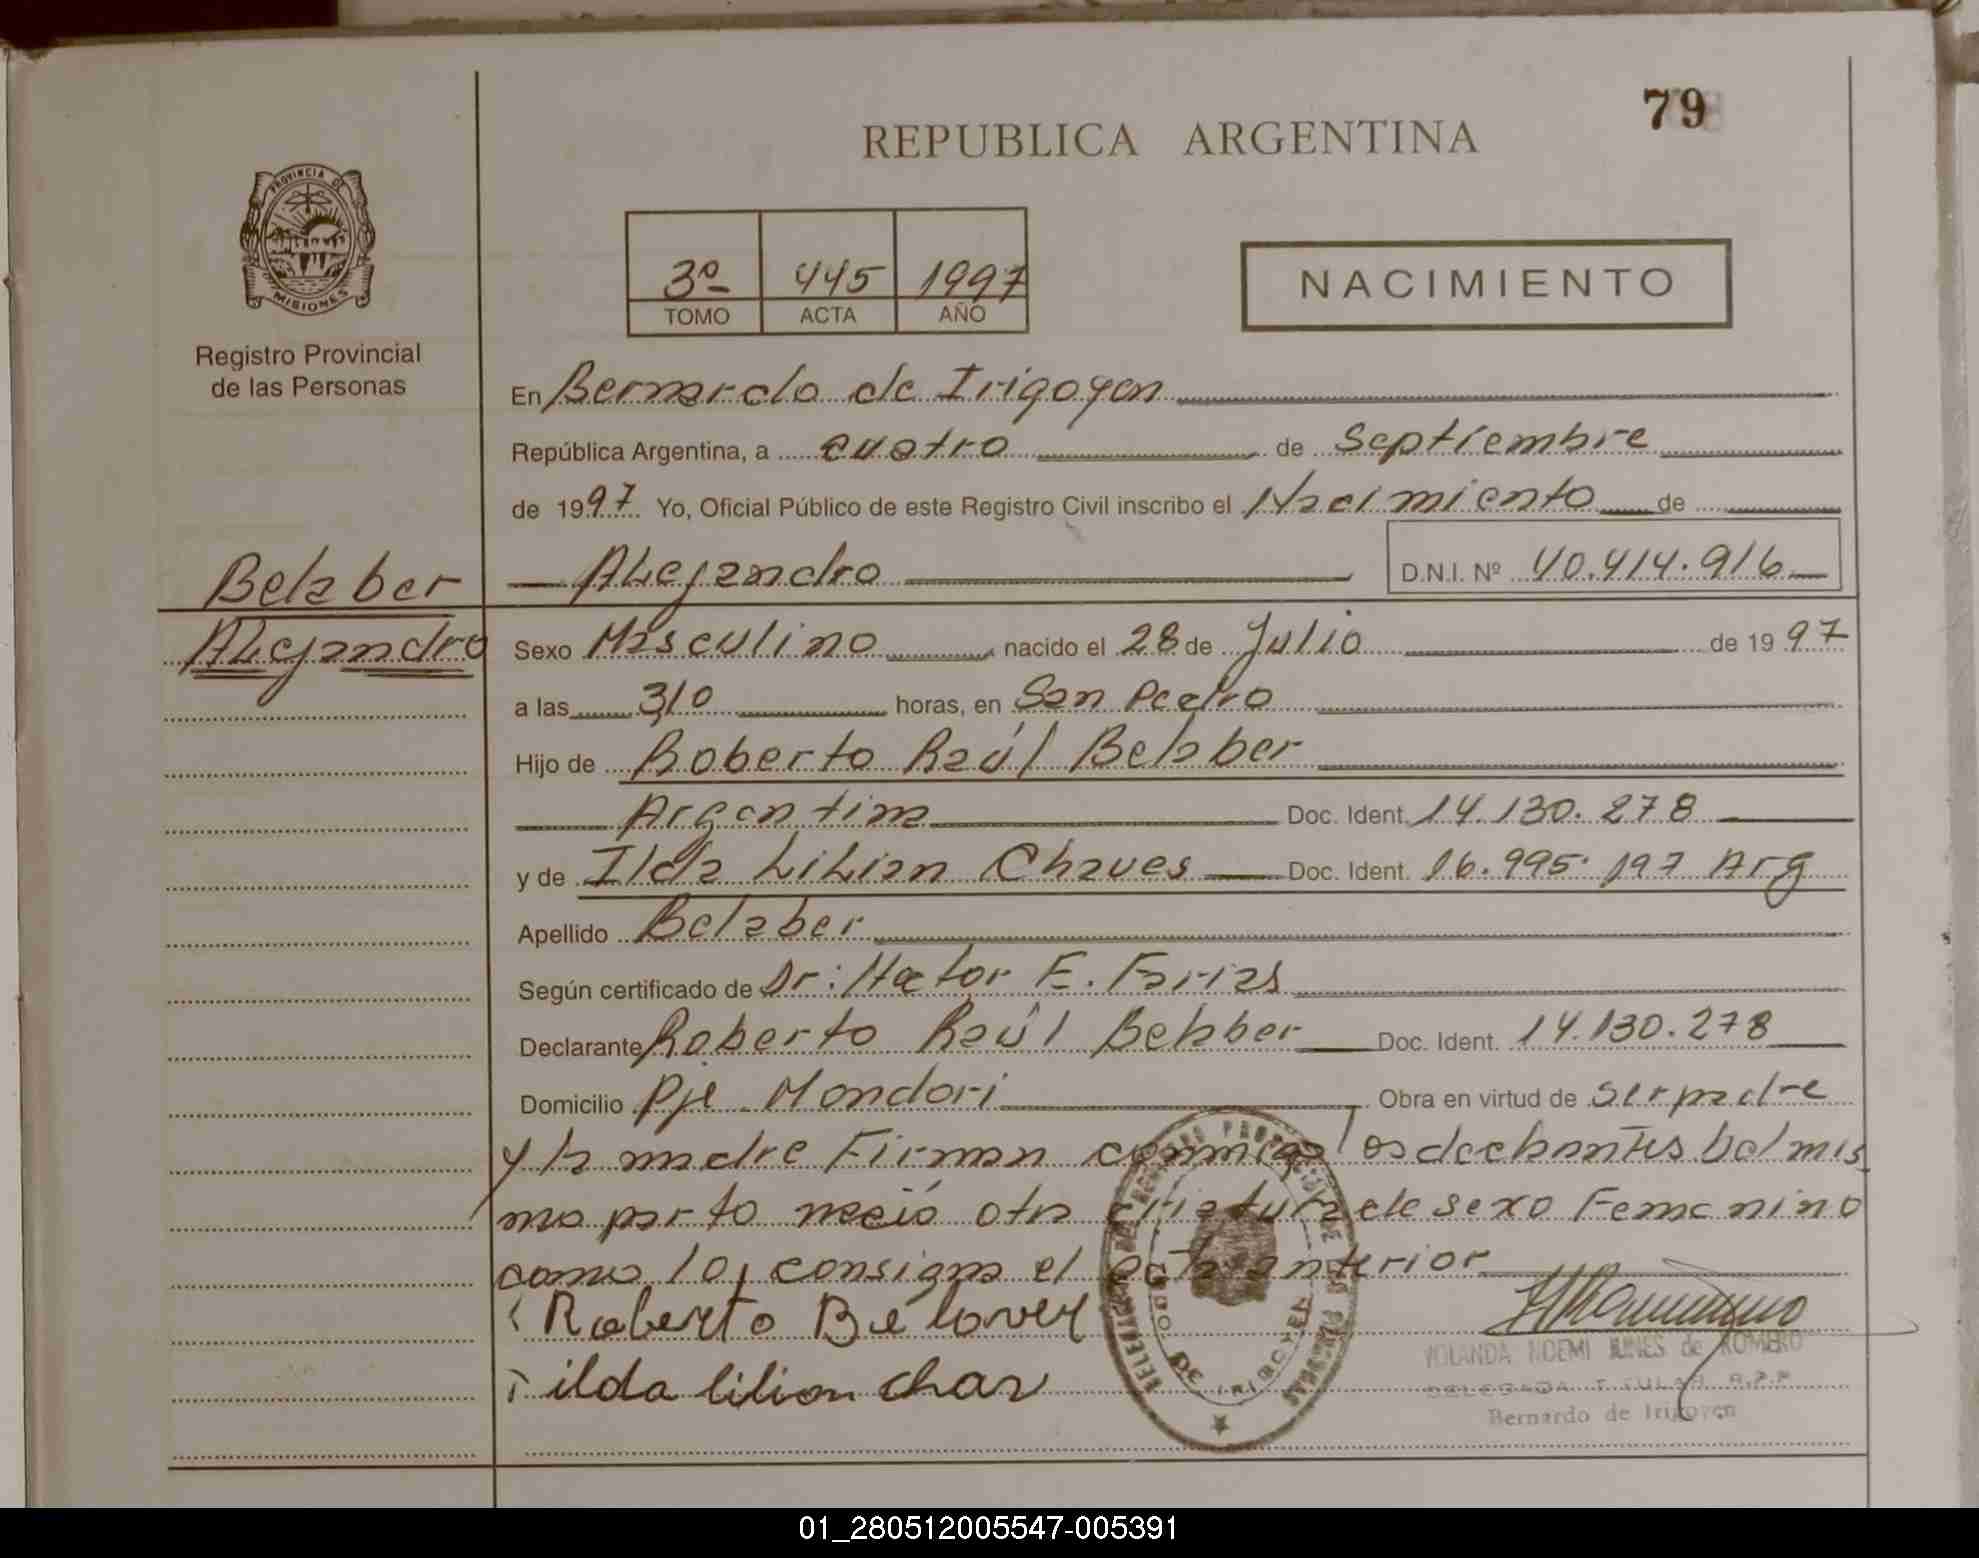 79
REPUBLICA ARGENTINA
PROVINCIA DE
MISIONES
Registro Provincial
de las Personas
3º 445 1997
TOMO ACTA AÑO
NACIMIENTO
En Bernardo de Irigoyen
República Argentina, a cuatro de Septiembre
de 1997 Yo, Oficial Público de este Registro Civil inscribo el Nacimiento de
Belaber
Alejandro
Alejandro D.N.I. Nº 40.414.916
Sexo Masculino nacido el 28 de Julio de 1997
a las 3,10 horas, en San Pedro
Hijo de Roberto Raúl Belaber
Argentina Doc. Ident. 14.130.278
y de Ilda Lilian Chaves Doc. Ident. 16.995.197 Arg
Apellido Belaber
Según certificado de Dr: Hector E. Farias
Declarante Roberto Raúl Belaber Doc. Ident. 14.130.278
Domicilio Pje Mondori Obra en virtud de ser padre
y la madre Firman conmigo los declarantes del mis
mo parto nació otra criatura de sexo Femenino
como lo consigna el acta anterior
Roberto Belaver
ilda lilian chav
DE IRIGOYEN
YOLANDA NOEMI de ROMERO
DELEGADA TITULAR R.P.P
Bernardo de Irigoyen
01_280512005547-005391